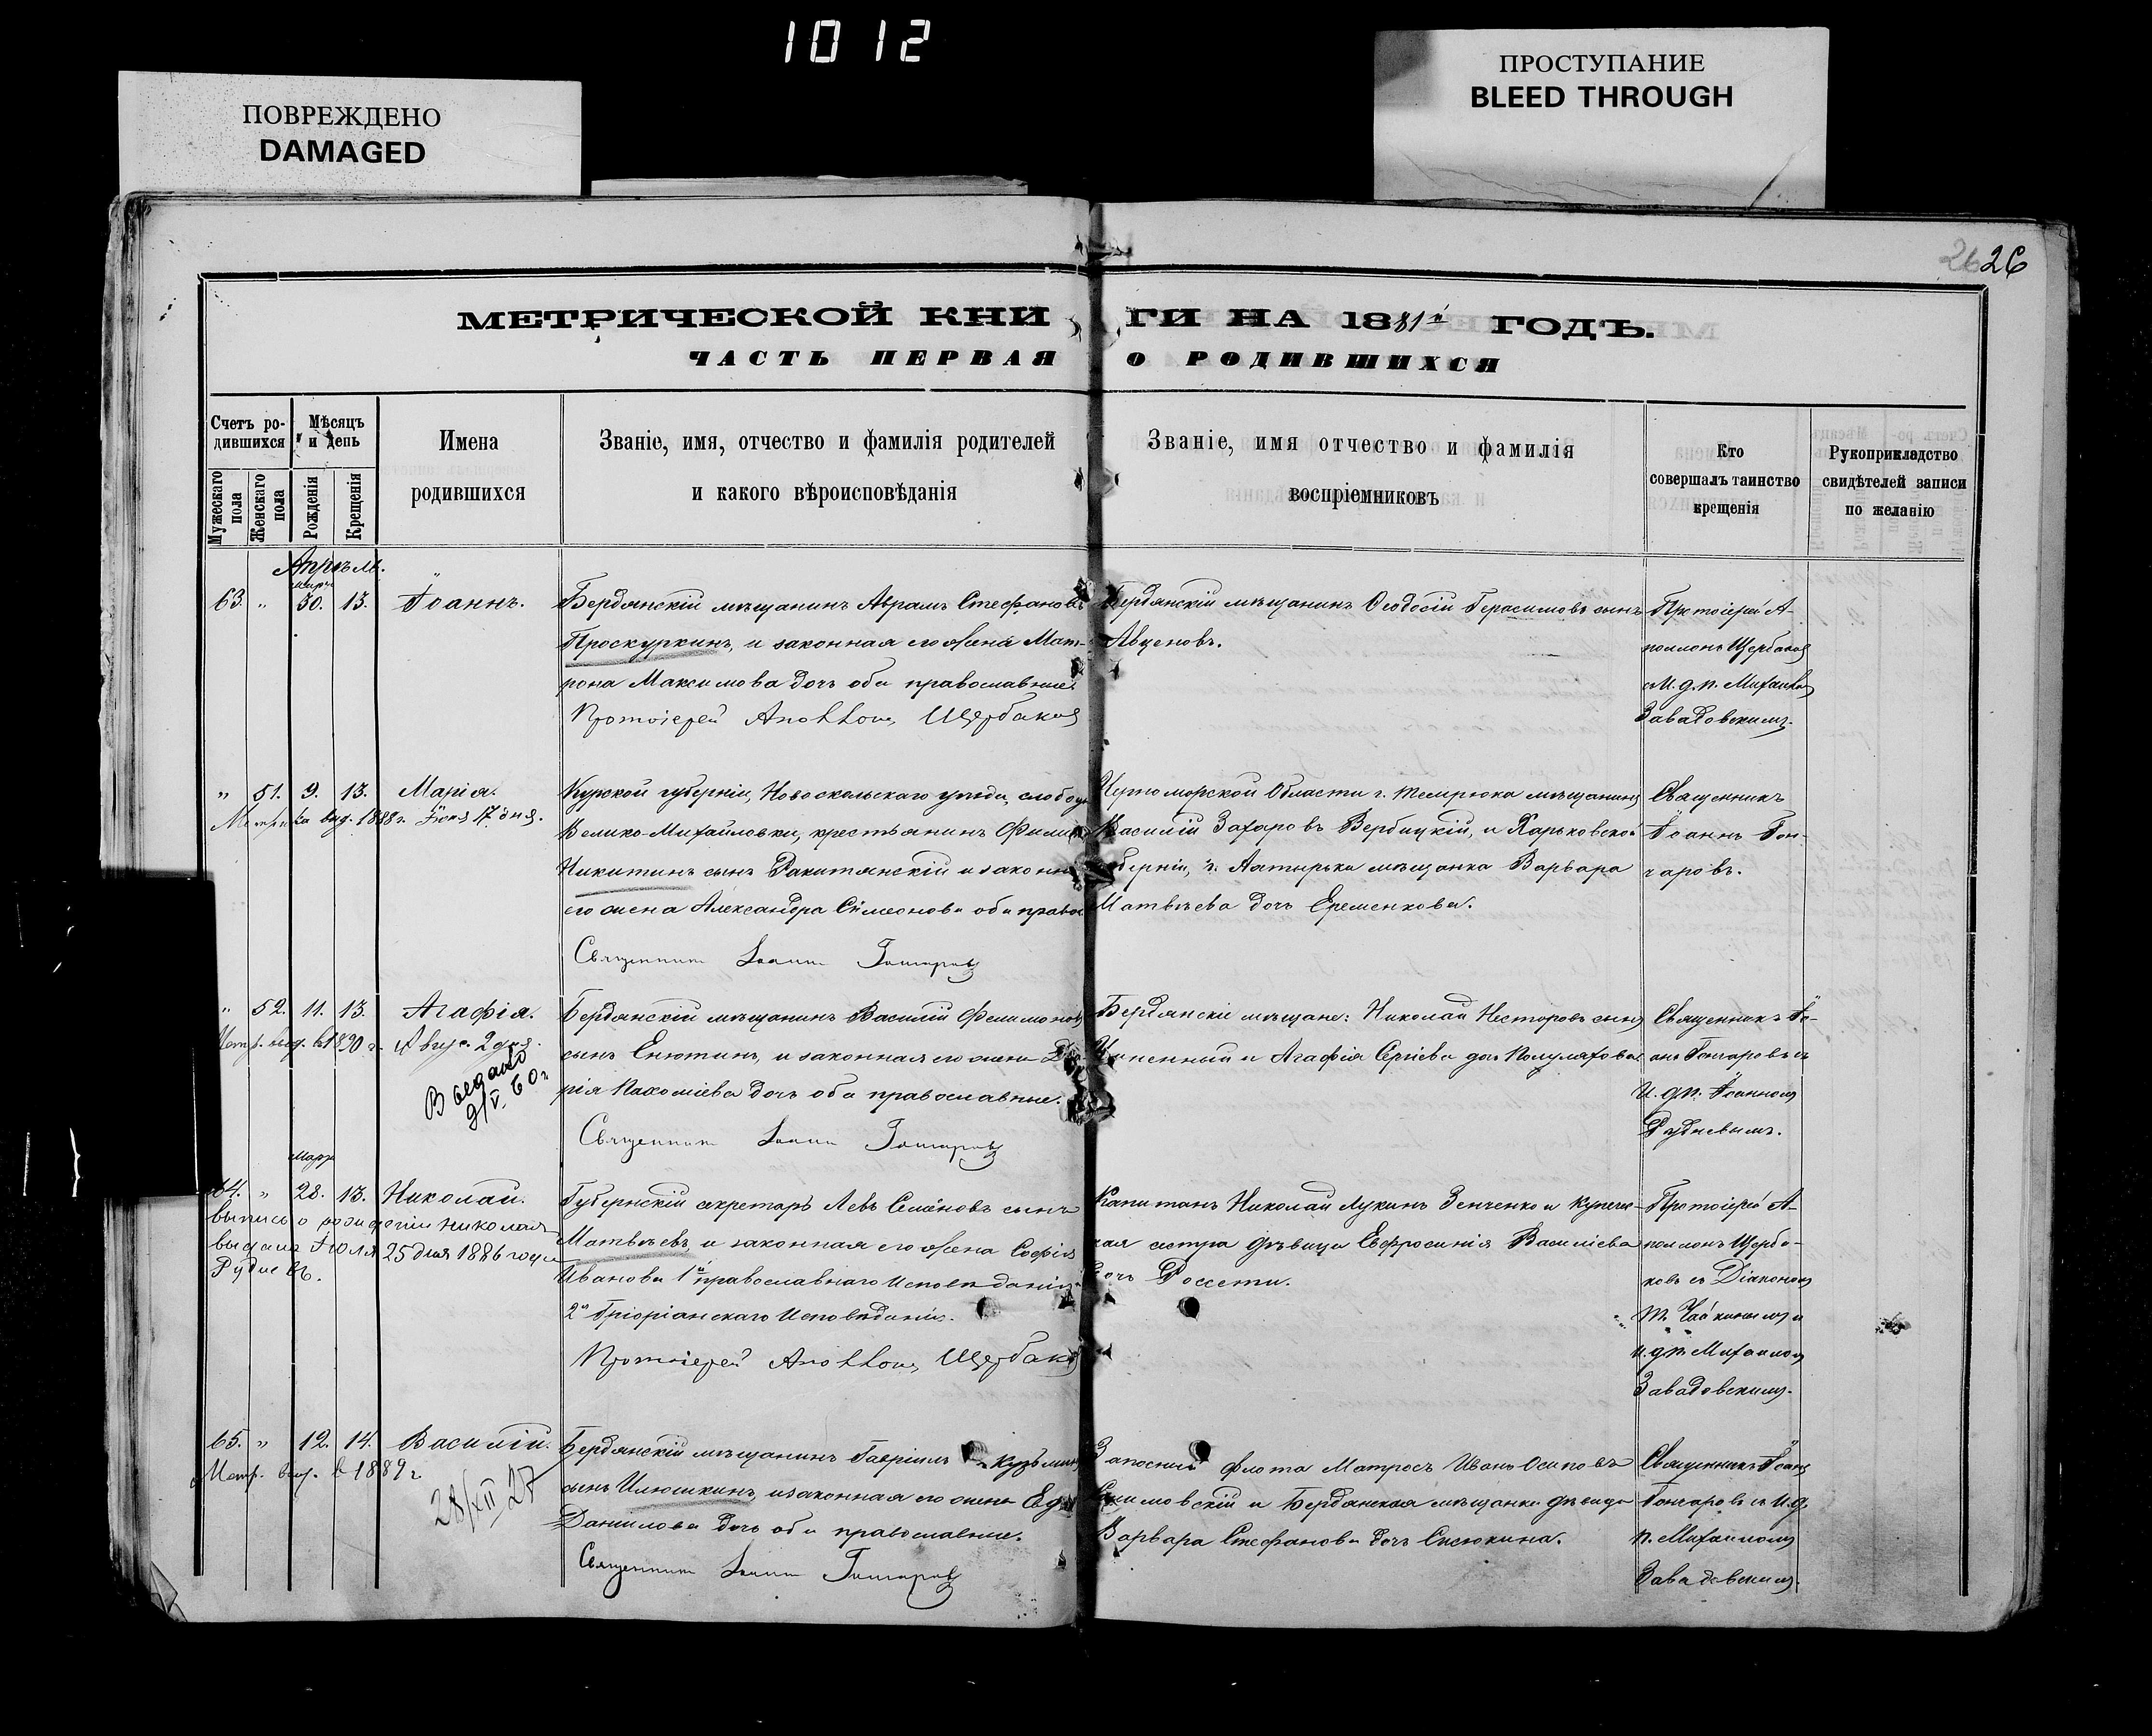 1012
ПОВРЕЖДЕНО
DAMAGED
ПРОСТУПАНИЕ
BLEED THROUGH
26 26
МЕТРИЧЕСКОЙ КНИ ГИ НА 1881й ГОДЪ.
ЧАСТЬ ПЕРВАЯ О РОДИВШИХСЯ
Счетъ ро-
дившихся
Мѣсяцъ
и день
Мужескаго пола
Женскаго пола
Рожденія
Крещенія
Имена
родившихся
Званіе, имя, отчество и фамилія родителей
и какого вѣроисповѣданія
Званіе, имя отчество и фамилія
воспріемниковъ
Кто
совершалъ таинство
крещенія
Рукоприкладство
свидѣтелей записи
по желанію
Апрѣль.
марта
63. " 30. 13. Іоаннъ.
Бердянскій мѣщанинъ Аврамъ Стефановъ
Проскуркинъ, и законная его жена Мат-
рона Максимова дочь оба православные.
Протоіерей Аполлонъ Щербаковъ
Бердянскій мѣщанинъ Ѳеодосій Герасимовъ сынъ
Авценовъ.
Протоіерей А-
поллонъ Щербаковъ
съ И. д. п. Михаиломъ
Завадовскимъ.
" 51. 9. 13. Марія.
Метрика выд. 1888 г. Іюня 17 дня.
Курской губерніи, Новоскольскаго уѣзда, слободы
Велико-Михайловки, крестьянинъ
Никитинъ сынъ Ракитянскій и законная
его жена Александра Симеонова оба правос
Священникъ Іоаннъ Гончаровъ
Черноморской Области г. Темрюка мѣщанинъ
Василій Захаровъ Вербицкій, и Харьковской
губерніи, г. Ахтырки мѣщанка Варвара
Матвѣева дочь Еременкова.
Священникъ
Іоаннъ Гон-
чаровъ.
" 52. 11. 13. Агафія.
Метр. выд. в 1890 г. Авгус. 2 дня.
Выдано
9/V. 60 г
Бердянскій мѣщанинъ Василій Филимоновъ
сынъ Енютинъ, и законная его жена
рія Пахоміева дочь оба православные.
Священникъ Іоаннъ Гончаровъ
Бердянскіе мѣщане: Николай Несторовъ сынъ
и Агафія Сергіева дочь Полуляхова
Священникъ Іо-
аннъ Гончаровъ съ
И. д. п. Іоанномъ
Рудневымъ.
марта
64. " 28. 13. Николай.
выпись о рожденіи Николая
выдана Іюля 25 дня 1886 года
Руднев.
Губернскій секретарь Левъ Семёновъ сынъ
Матвѣевъ, и законная его жена Софія
Иванова 1й православнаго исповѣданія
2я Гріоріанскаго исповѣданія.
Протоіерей Аполлонъ Щербаковъ
Капитанъ Николай Лукинъ Зенченко и купечес-
кая сестра дѣвица Евфросинія Василіева
дочь Россети.
Протоіерей А-
поллонъ Щерба-
ковъ съ Діакономъ
Т. Чайкинымъ и
и. д. п. Михаиломъ
Завадовскимъ.
65. " 12. 14. Василій.
Метр. выд. в 1889 г
28/XII 27
Бердянскій мѣщанинъ Гавріилъ Кузьминъ
сынъ Илюшкинъ, и законная его жена
Данилова дочь оба православные.
Священникъ Іоаннъ Гончаровъ
Запасный флота Матросъ Иванъ Осиповъ
и Бердянская мѣщанка дѣвица
Варвара Стефанова дочь Сисюкина.
Священникъ Іоаннъ
Гончаровъ съ И. д.
п. Михаиломъ
Завадовскимъ.